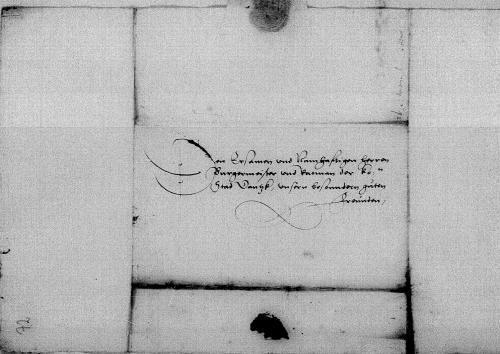 Den Ersamen vnd Namhafftigen herren
Burgermeister vnd Ratman der ko:n
Stad Dantzk, vnsern besondern guten
freunden,
72